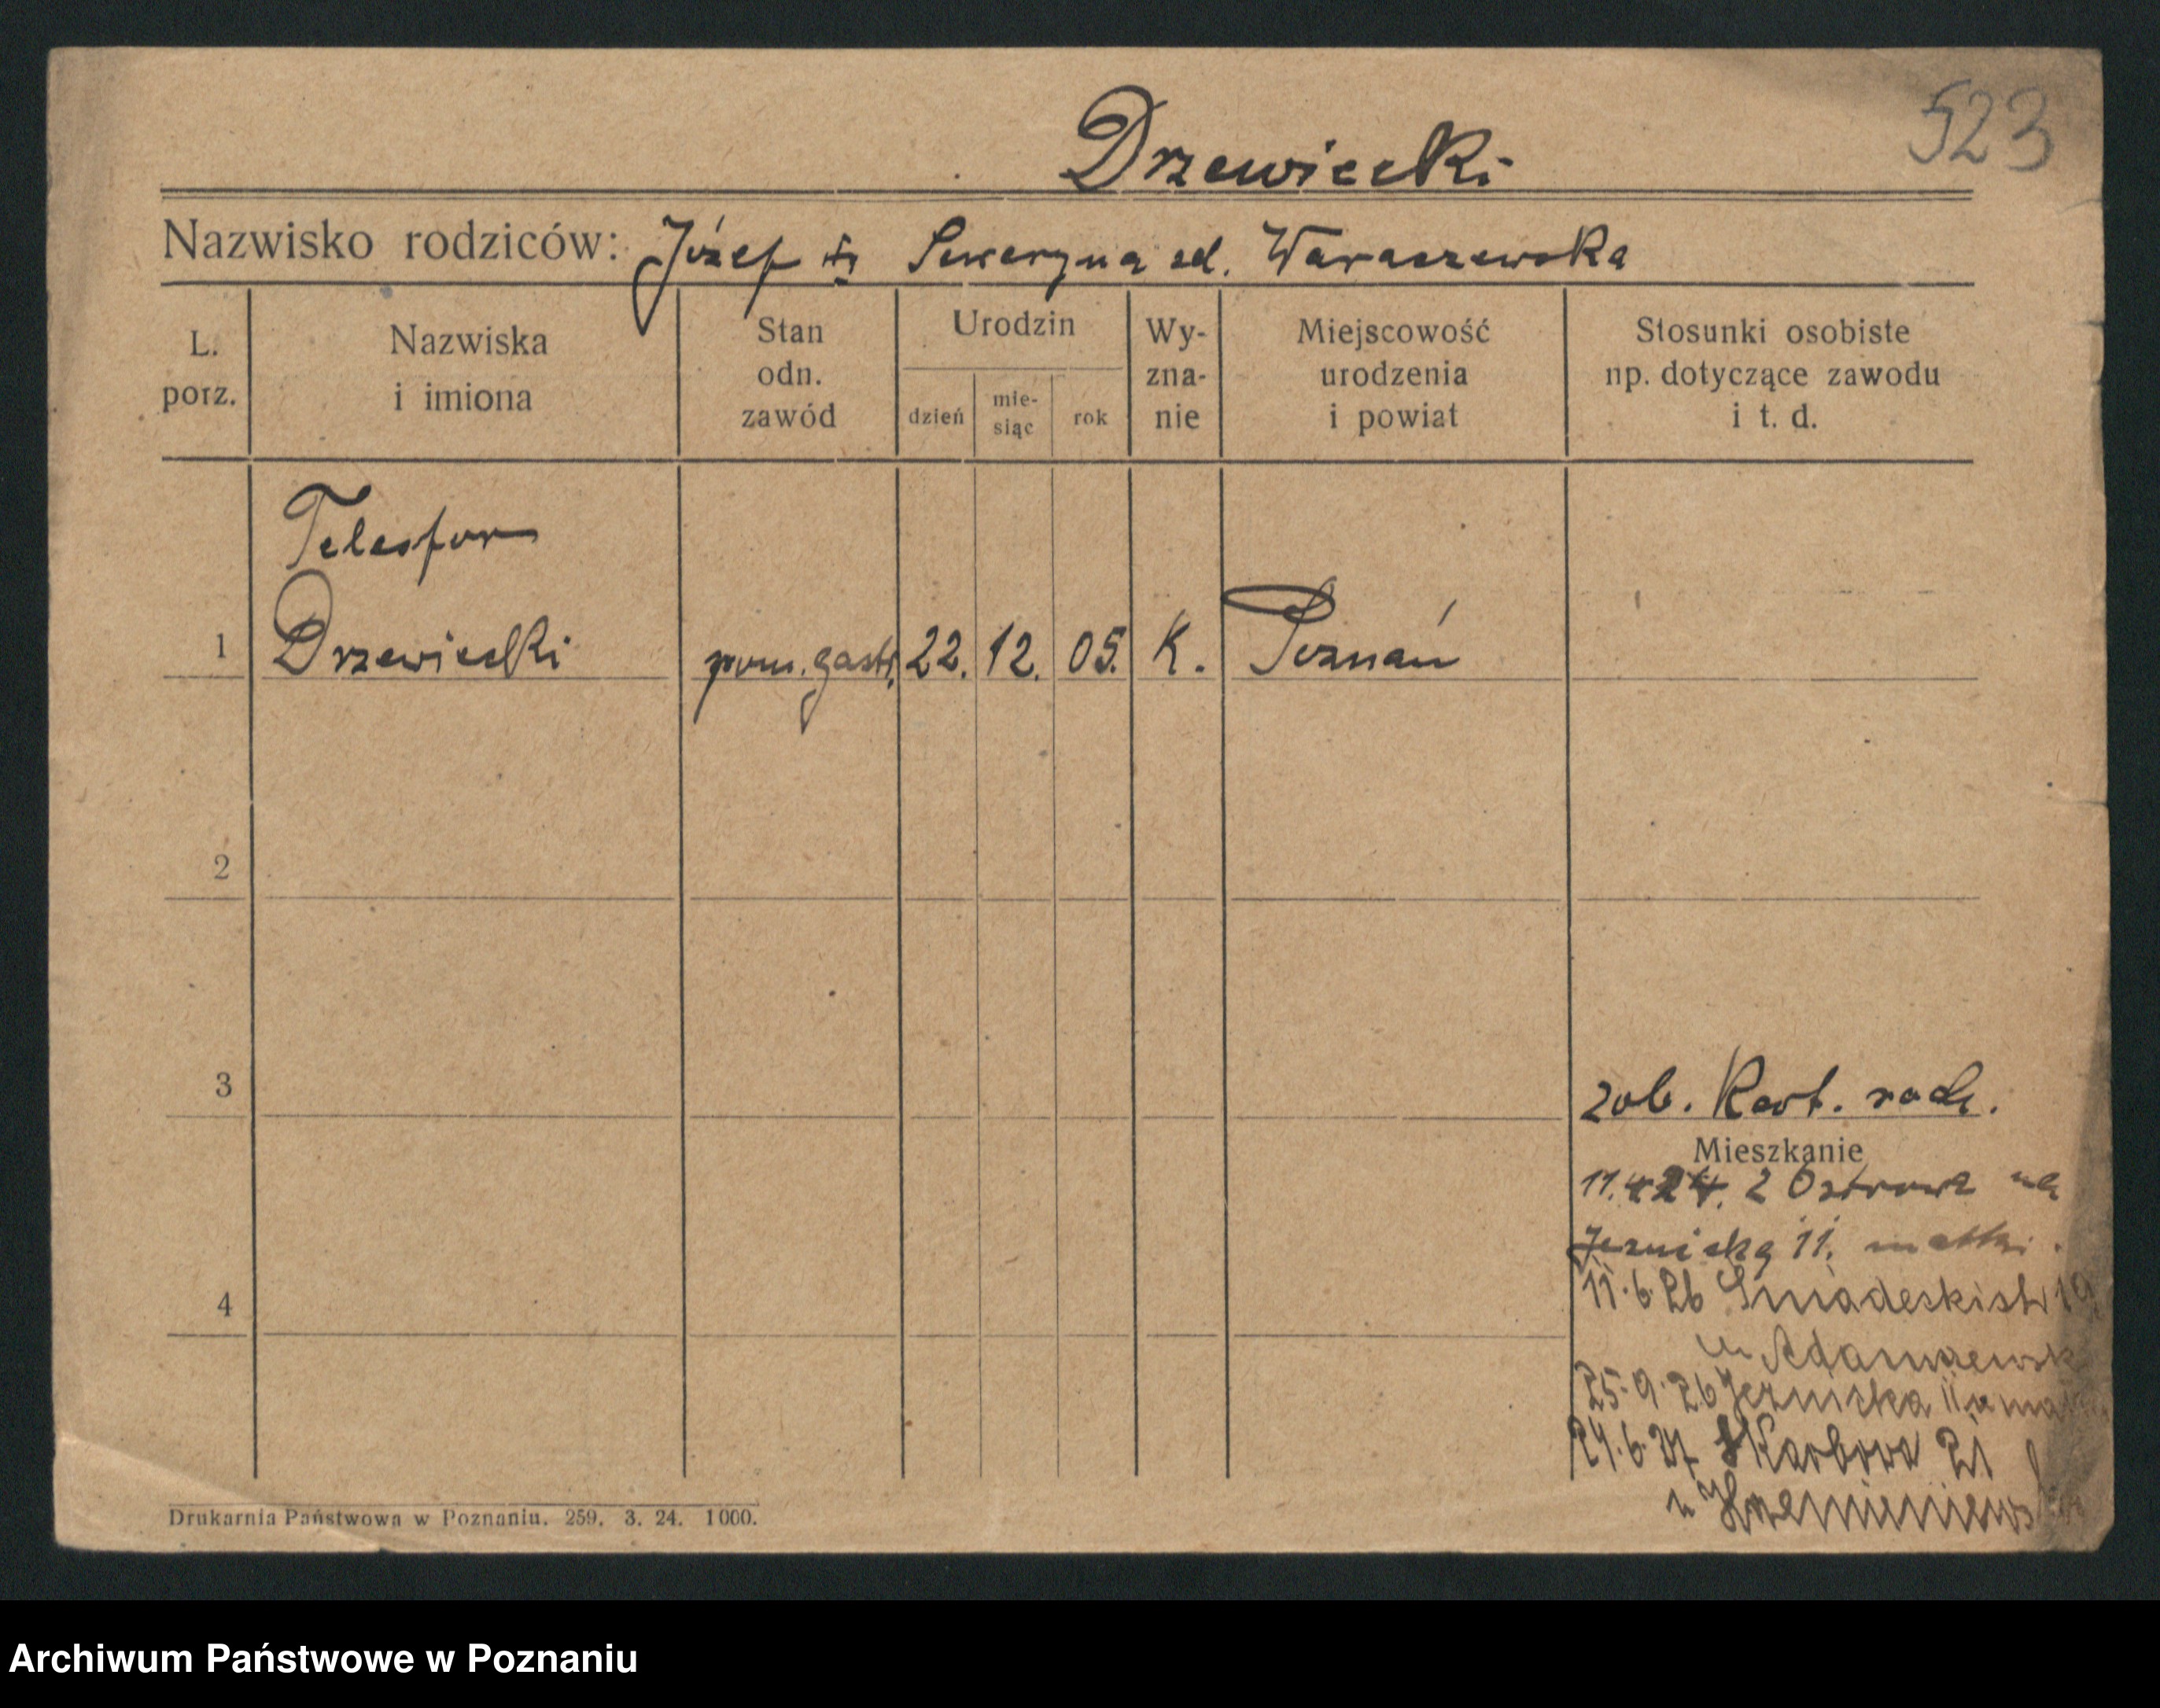 523
Drzewiecki
Nazwisko rodziców: Józef i Seweryna zd. Waraszewska
L. porz.
Nazwiska i imiona
Stan odn. zawód
Urodzin
dzień
mie-siąc
rok
Wy-zna-nie
Miejscowość urodzenia i powiat
Stosunki osobiste np. dotyczące zawodu i t. d.
Telesfor
1 Drzewiecki pom. gastr. 22. 12. 05. K. Poznań
2
3
zob. Kart. rodz.
Mieszkanie
11.4.24. z Ostrowa na
Jeżnicką 11. matki.
4
11.6.26 Sniadeskich 19
u
25.9.26 11 u
24.6.27 Skarbowa 21
u
Drukarnia Państwowa w Poznaniu. 259. 3. 24. 1000.
Archiwum Państwowe w Poznaniu